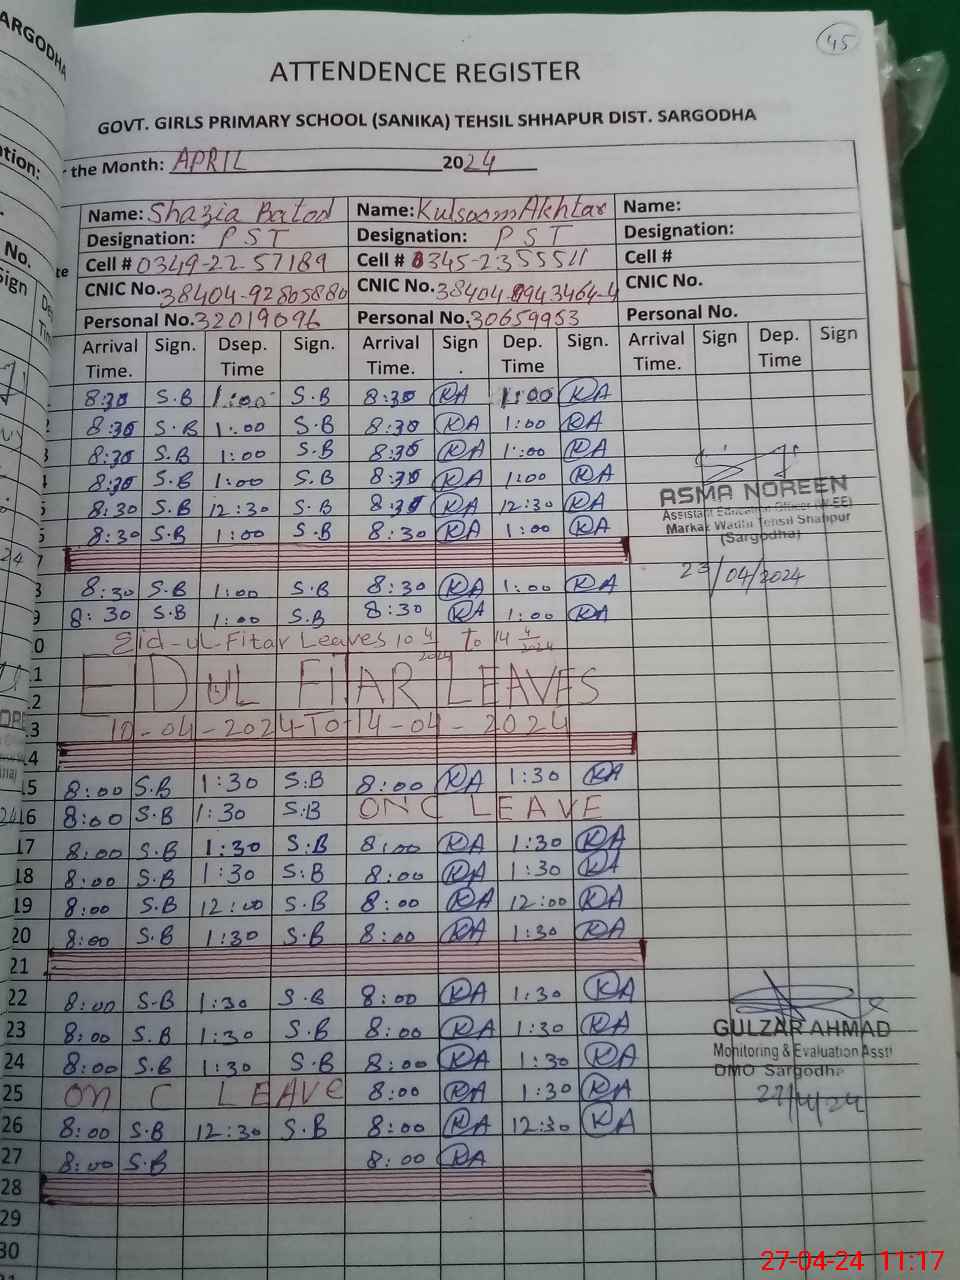 45
ATTENDENCE REGISTER
GOVT. GIRLS PRIMARY SCHOOL (SANIKA) TEHSIL SHHAPUR DIST. SARGODHA
the Month: APRIL 2024
Name: Shazia Batool Name: Kulsoom Akhtar Name:
Designation: PST Designation: PST Designation:
Cell # 0349-22-57189 Cell # 0345-2355511 Cell #
CNIC No. CNIC No. CNIC No.
Personal No. 32019096 Personal No. 30659953 Personal No.
Arrival Time. Sign. Dsep. Time Sign. Arrival Time. Sign . Dep. Time Sign. Arrival Time. Sign Dep. Time Sign
8:30 S.B 1:00 S.B 8:30 KA 1:00 KA
8:30 S.B 1:00 S.B 8:30 KA 1:00 KA
3 8:30 S.B 1:00 S.B 8:30 KA 1:00 KA
8:30 S.B 1:00 S.B 8:30 KA 1:00 KA
8:30 S.B 12:30 S.B 8:30 KA 12:30 KA
8:30 S.B 1:00 S.B 8:30 KA 1:00 KA
7
ASMA NOREEN
Assistant Education Officer
Tehsil Shahpur
(Sargodha)
23/04/2024
8 8:30 S.B 1:00 S.B 8:30 KA 1:00 KA
9 8:30 S.B 1:00 S.B 8:30 KA 1:00 KA
0 Eid-ul-Fitar Leaves 10 4/2024 To 14 4/2024
.1 EID UL FITAR LEAVES
.2
.3 10-04-2024 To 14-04-2024
.4
15 8:00 S.B 1:30 S.B 8:00 KA 1:30 KA
16 8:00 S.B 1:30 S.B ON C LEAVE
17 8:00 S.B 1:30 S.B 8:00 KA 1:30 KA
18 8:00 S.B 1:30 S.B 8:00 KA 1:30 KA
19 8:00 S.B 12:00 S.B 8:00 KA 12:00 KA
20 8:00 S.B 1:30 S.B 8:00 KA 1:30 KA
21
22 8:00 S.B 1:30 S.B 8:00 KA 1:30 KA
23 8:00 S.B 1:30 S.B 8:00 KA 1:30 KA
24 8:00 S.B 1:30 S.B 8:00 KA 1:30 KA
25 On C LEAVE 8:00 KA 1:30 KA
26 8:00 S.B 12:30 S.B 8:00 KA 12:30 KA
27 8:00 S.B 8:00 KA
28
29
30
GULZAR AHMAD
Monitoring & Evaluation Asstt
DMO Sargodha
27-04-24 11:17